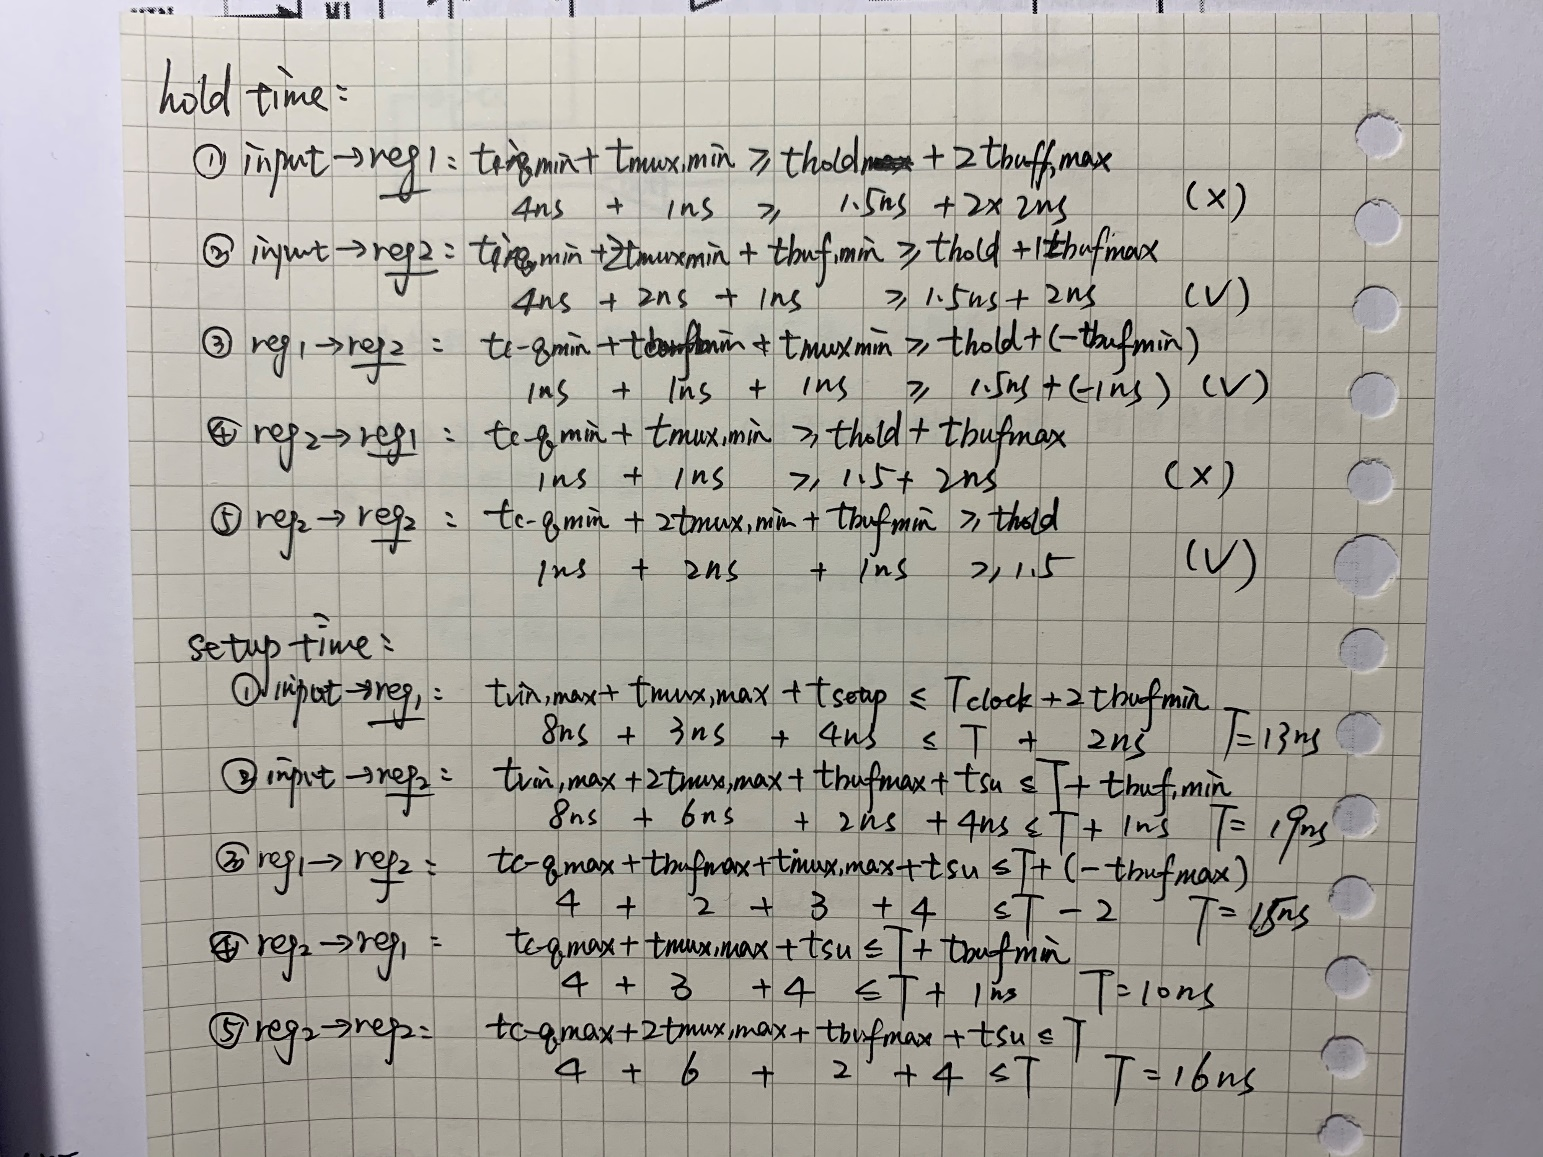 hold time:
① input→reg1: tvin,min + tmux,min ≥ thold + 2tbuff,max
4ns + 1ns ≥ 1.5ns + 2x 2ns (X)
② input→reg2: tvin,min + 2tmuxmin + tbuf,min ≥ thold + 1tbufmax
4ns + 2ns + 1ns ≥ 1.5ns + 2ns (V)
③ reg1→reg2 : tc-qmin + tbufmin + tmuxmin ≥ thold + (-tbufmin)
1ns + 1ns + 1ns ≥ 1.5ns + (-1ns) (V)
④ reg2→reg1 : tc-qmin + tmux,min ≥ thold + tbufmax
1ns + 1ns ≥ 1.5 + 2ns (X)
⑤ reg2→reg2 : tc-qmin + 2tmux,min + tbufmin ≥ thold
1ns + 2ns + 1ns ≥ 1.5 (V)
setup time:
① input→reg1: tvin,max + tmux,max + tsetup ≤ Tclock + 2tbufmin
8ns + 3ns + 4ns ≤ T + 2ns T=13ns
② input→reg2: tvin,max + 2tmux,max + tbufmax + tsu ≤ T + tbuf,min
8ns + 6ns + 2ns + 4ns ≤ T + 1ns T= 19ns
③ reg1→reg2: tc-qmax + tbufmax + tmux,max + tsu ≤ T + (-tbufmax)
4 + 2 + 3 + 4 ≤ T - 2 T= 15ns
④ reg2→reg1 : tc-qmax + tmux,max + tsu ≤ T + tbufmin
4 + 3 + 4 ≤ T + 1ns T=10ns
⑤ reg2→reg2: tc-qmax + 2tmux,max + tbufmax + tsu ≤ T
4 + 6 + 2 + 4 ≤ T T=16ns